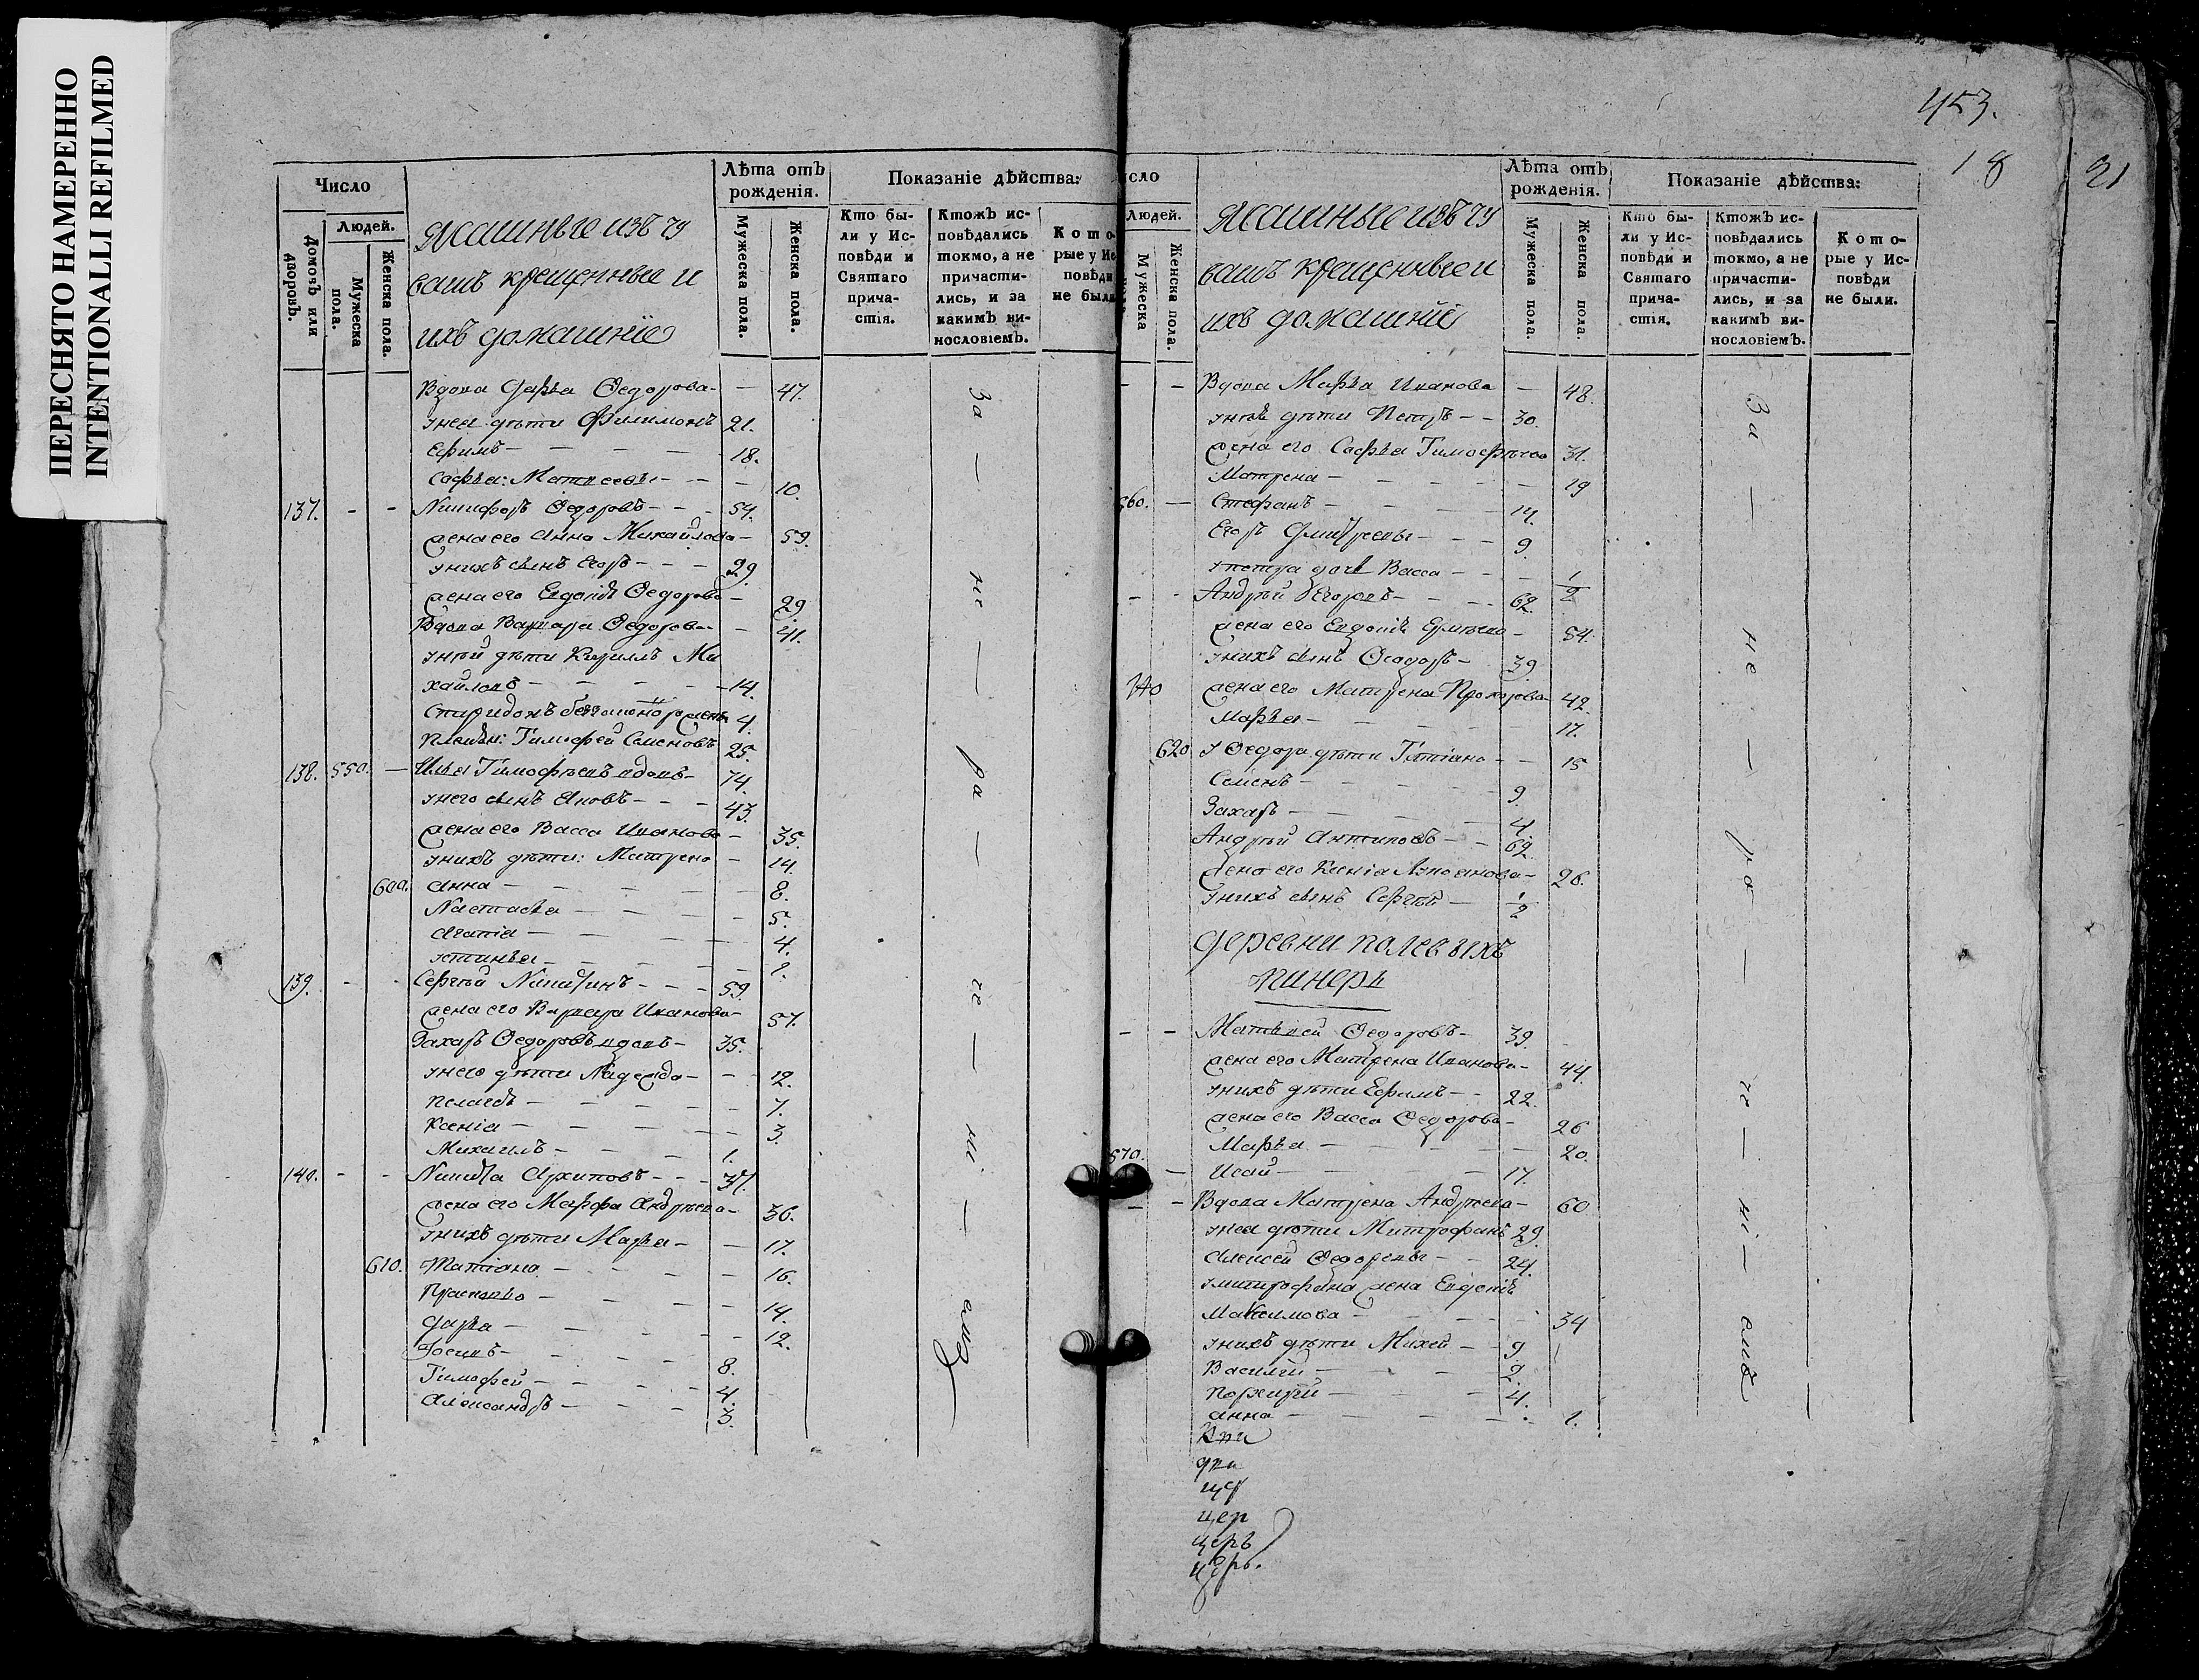 ПЕРЕСНЯТО НАМЕРЕННО
INTENTIONALLI REFILMED
Число
Людей.
Домовъ или дворовъ.
Мужеска пола.
Женска пола.
Ясашные изъ чу
вашъ крещенные и
ихъ домашніе
Лѣта отъ рожденія.
Мужеска пола.
Женска пола.
Показаніе дѣйства:
Кто бы-
ли у Ис-
повѣди и
Святаго
прича-
стія.
Ктожъ ис-
повѣдались
токмо, а не
причасти-
лись, и за
какимъ ви-
нословіемъ.
Кото-
рые у Ис
повѣди
не были
Вдова Дарья Ѳедорова - 47.
у нея дѣти Филимонъ 21.
Ефимъ - 18.
Софья: Матвеевы - 10.
137. - - Никифоръ Ѳедоровъ - 54.
жена его Анна Михайлова - 59.
у нихъ сынъ Егоръ - 29.
жена его Евдокія Ѳедорова - 29.
Вдова Варвара Ѳедорова - 41.
у ней дѣти Кириллъ Ми
хайловъ - 14.
Спиридонъ 4.
Тимофей Семеновъ 25.
138. 550. - Илья Тимофѣевъ вдовъ - 74.
у него сынъ Яковъ - 43.
жена его Васса Иванова - 35.
у нихъ дѣти: Матрена - 14.
600. Анна - 8.
Настасья - 5.
Агапія - 4.
Устинья - 1.
139. - - Сергѣй Никитинъ - 59.
жена его Варвара Иванова - 57.
Захаръ Ѳедоровъ вдовъ - 35.
у него дѣти Надежда - 12.
Пелагея - 7.
Ксенія - 3.
Михаилъ - 1.
140. - - Никита Архиповъ - 37.
жена его Марфа Андреева - 36.
у нихъ дѣти Марья - 17.
610. Татіана - 16.
Прасковья - 14.
Дарья - 12.
Іосифъ - 8.
Тимофей - 4.
Александръ - 3.
За - не - ра - че - ні - емъ
453.
18
21
сло
Людей.
Мужеска
Женска пола.
Ясашные изъ чу
вашъ крещенные и
ихъ домашніе
Лѣта отъ рожденія.
Мужеска пола.
Женска пола.
Показаніе дѣйства:
Кто бы-
ли у Ис-
повѣди и
Святаго
прича-
стія.
Ктожъ ис-
повѣдались
токмо, а не
причасти-
лись, и за
какимъ ви-
нословіемъ.
Кото-
рые у Ис-
повѣди
не были.
- - Вдова Марья Иванова - 48.
у ней дѣти Петръ - - 30.
жена его Софья Тимофѣева 31.
Матрена - 19
560. - Стефанъ - 14.
Егоръ Дмитревы - 9.
у Петра дочь Васса - 1/2
- - Андрей Егоровъ - 62.
жена его Евдокія - 54.
у нихъ сынъ Ѳеодоръ - 39
жена его Матрена Прохорова - 42.
Марья - 17.
620 у Ѳедора дѣти Татіана - 15
Семенъ - 9.
Захаръ - 4.
Андрей Антиповъ - 62.
жена его Ксенія - 26.
у нихъ сынъ Сергѣй - 1/2
деревни полевыхъ
пинерь
- - Матвей Ѳедоровъ - 39.
жена его Матрена Иванова - 44.
у нихъ дѣти Ефимъ - - 22.
жена его Васса Ѳедорова - 26
Марья - 20.
570. - Исай - 17.
- - Вдова Матрена Андреева - 60
у нея дѣти Митрофанъ 29.
Алексей Ѳедоровы - 24.
у Митрофана жена Евдокія
Максимова - 34
у нихъ дѣти Михей - 9
Василій - 2.
Порфирій - 4.
Анна - 1.
За - не - ра - че - ні - емъ
цер
церь